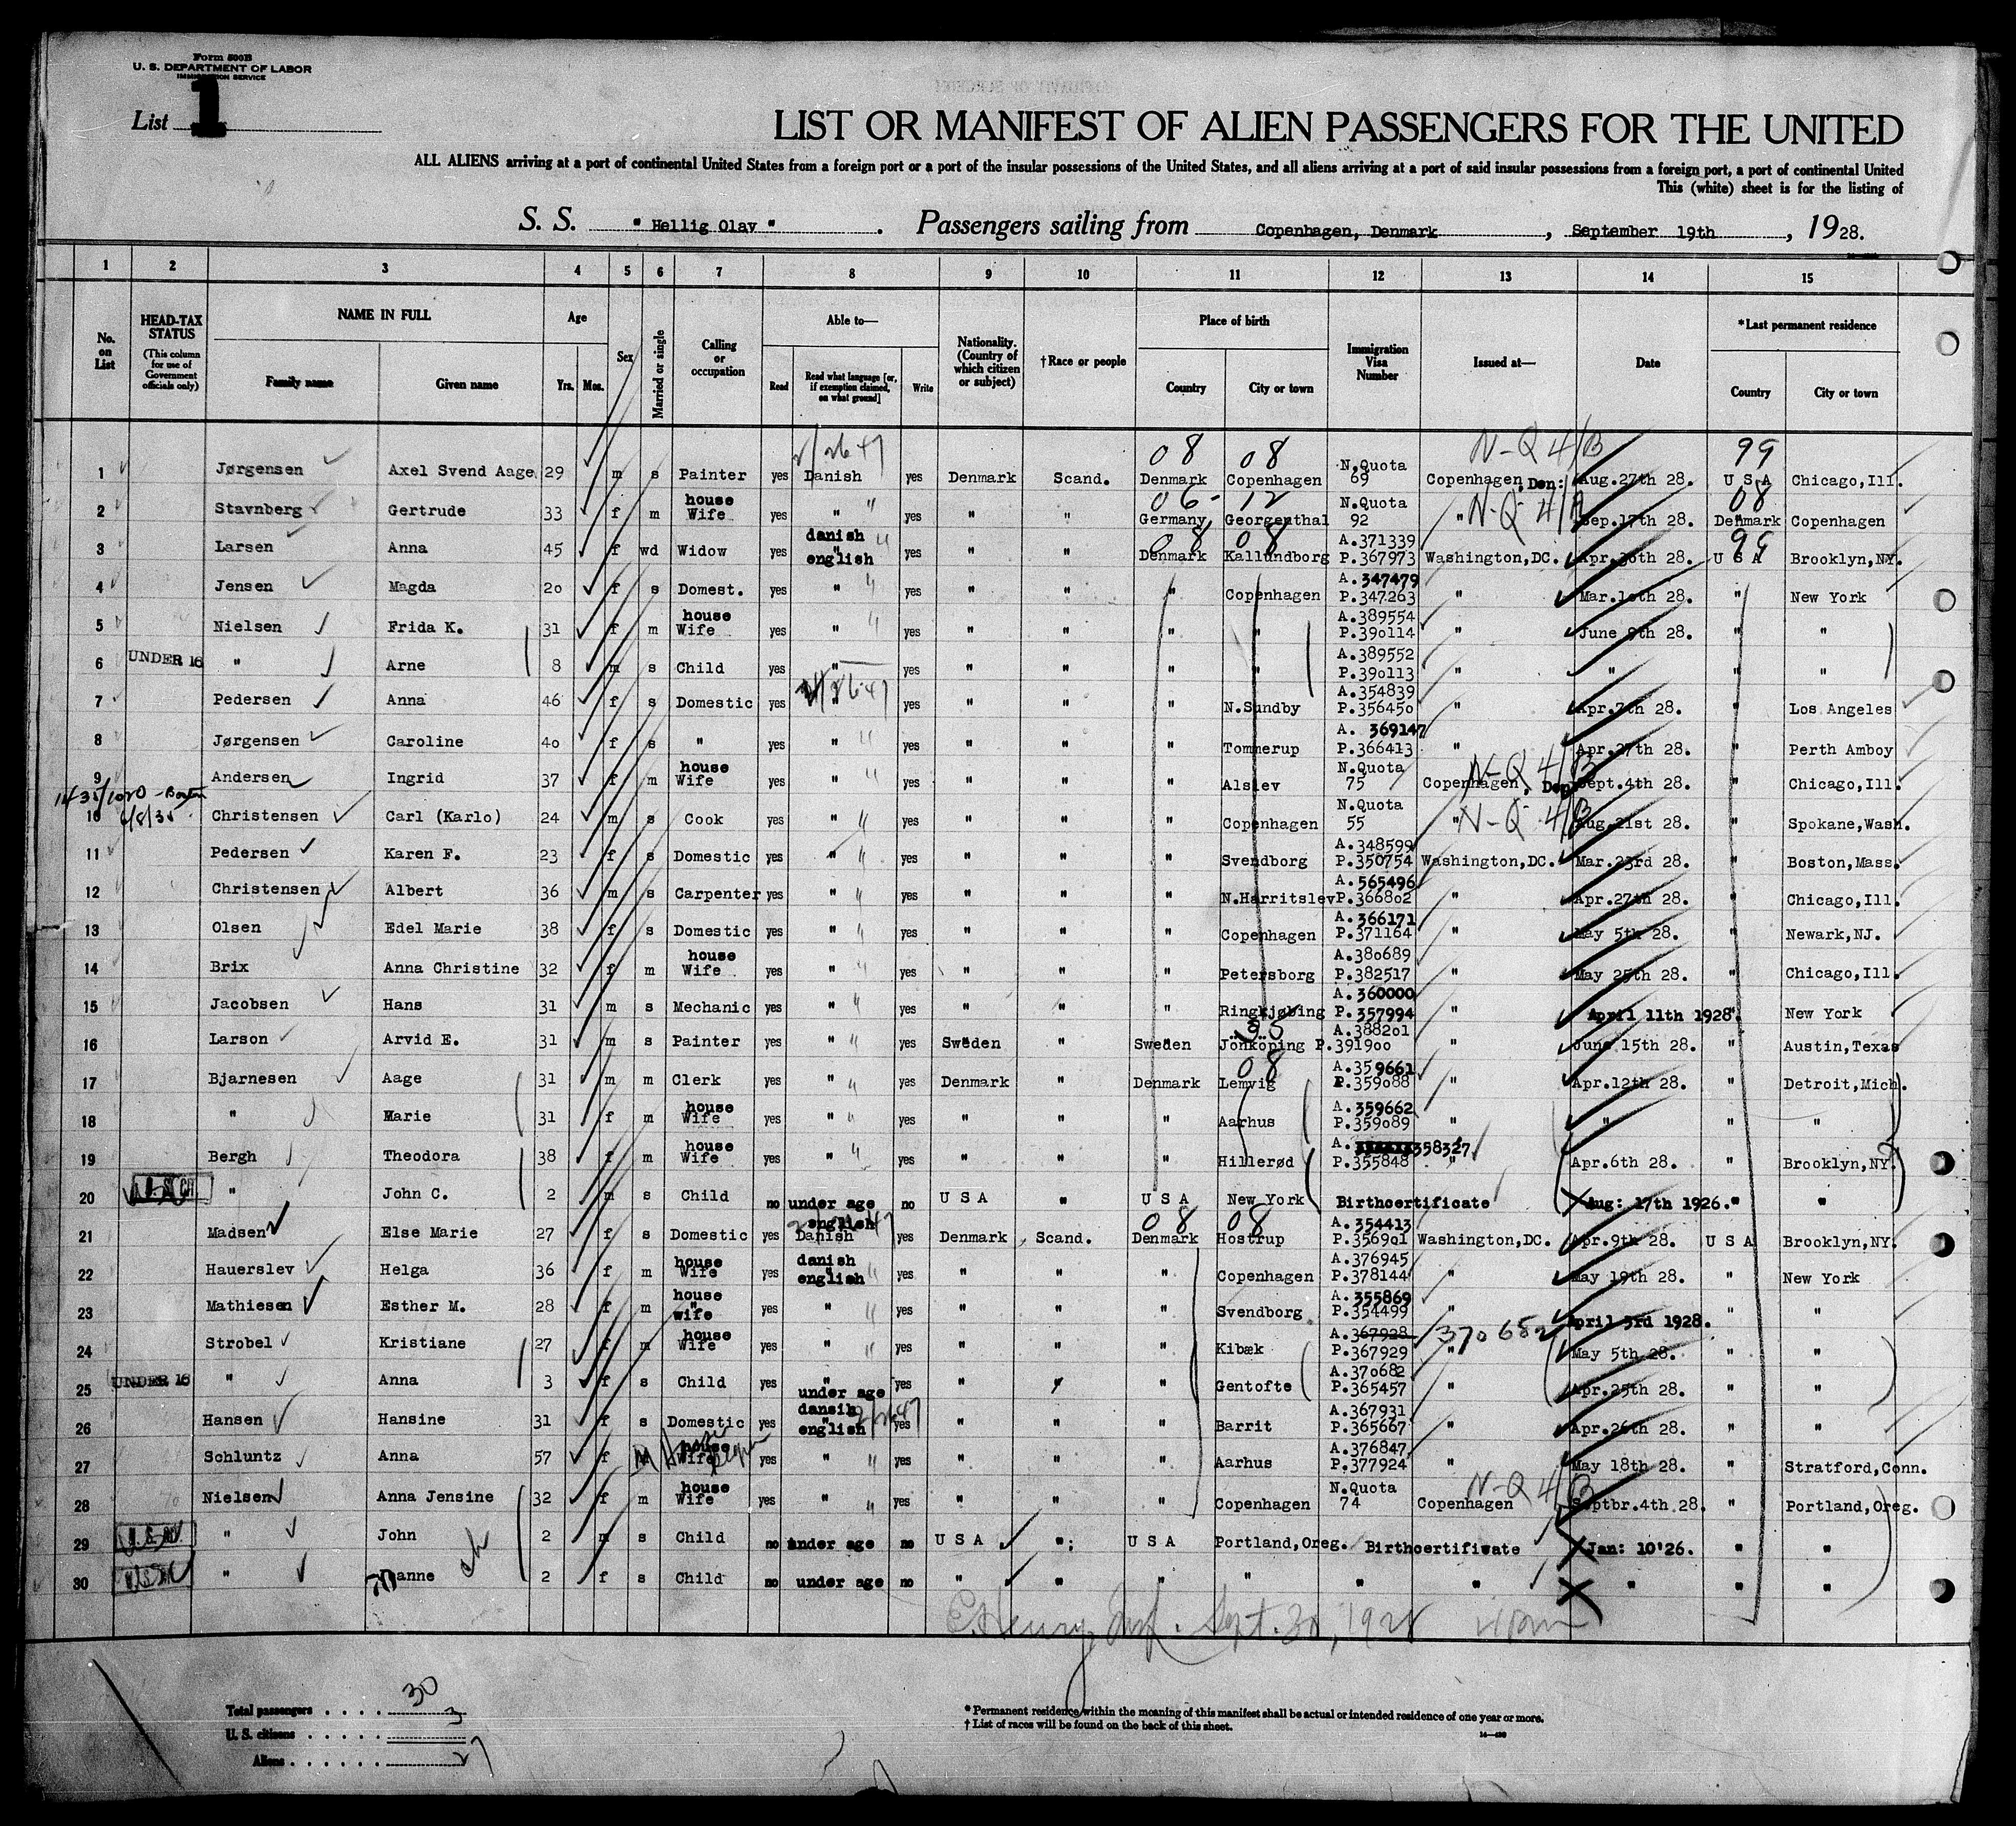 Form 500B
U. S. DEPARTMENT OF LABOR
IMMIGRATION SERVICE
List 1
LIST OR MANIFEST OF ALIEN PASSENGERS FOR THE UNITED
ALL ALIENS arriving at a port of continental United States from a foreign port or a port of the insular possessions of the United States, and all aliens arriving at a port of said insular possessions from a foreign port, a port of continental United
This (white) sheet is for the listing of
S. S. " Hellig Olav " . Passengers sailing from Copenhagen, Denmark , September 19th , 1928.
1 2 3 4 5 6 7 8 9 10 11 12 13 14 15
No. on List
HEAD-TAX STATUS (This column for use of Government officials only)
NAME IN FULL
Family name Given name
Age Yrs. Mos.
Sex
Married or single
Calling or occupation
Able to— Read Read what language [or, if exemption claimed, on what ground] Write
Nationality. (Country of which citizen or subject)
†Race or people
Place of birth Country City or town
Immigration Visa Number
Issued at—
Date
*Last permanent residence Country City or town
1 Jørgensen Axel Svend Aage 29 m s Painter yes Danish yes Denmark Scand. Denmark Copenhagen N.Quota 69 Copenhagen, Den: Aug.27th 28. U S A Chicago,Ill. 08 08 N-Q 4/B 99
2 Stavnberg Gertrude 33 f m house Wife yes " yes " " Germany Georgenthal N.Quota 92 " Sep.17th 28. Denmark Copenhagen 06- 12 N-Q 4/A 08
3 Larsen Anna 45 f wd Widow yes danish english yes " " Denmark Kallundborg A.371339 P.367973 Washington,DC. Apr.30th 28. U S A Brooklyn,NY. 08 08 99
4 Jensen Magda 20 f s Domest. yes " yes " " " Copenhagen A.347479 P.347263 " Mar.10th 28. " New York
5 Nielsen Frida K. 31 f m house Wife yes " yes " " " " A.389554 P.390114 " June 9th 28. " "
6 UNDER 16 " Arne 8 m s Child yes " yes " " " " A.389552 P.390113 " " " "
7 Pedersen Anna 46 f s Domestic yes " yes " " " N.Sundby A.354839 P.356450 " Apr.7th 28. " Los Angeles
8 Jørgensen Caroline 40 f s " yes " yes " " " Tommerup A. 369147 P.366413 " Apr.27th 28. " Perth Amboy
9 Andersen Ingrid 37 f m house Wife yes " yes " " " Alslev N.Quota 75 Copenhagen, Den Sept.4th 28. " Chicago,Ill. N-Q 4/B
10 Christensen Carl (Karlo) 24 m s Cook yes " yes " " " Copenhagen N.Quota 55 " Aug.21st 28. " Spokane,Wash. N-Q 4/B
11 Pedersen Karen F. 23 f s Domestic yes " yes " " " Svendborg A.348599 P.350754 Washington,DC. Mar.23rd 28. " Boston,Mass.
12 Christensen Albert 36 m s Carpenter yes " yes " " " N.Harritslev A.565496 P.366802 " Apr.27th 28. " Chicago,Ill.
13 Olsen Edel Marie 38 f s Domestic yes " yes " " " Copenhagen A.366171 P.371164 " May 5th 28. " Newark,NJ.
14 Brix Anna Christine 32 f m house Wife yes " yes " " " Petersborg A.380689 P.382517 " May 25th 28. " Chicago,Ill.
15 Jacobsen Hans 31 m s Mechanic yes " yes " " " Ringkjøbing A.360000 P.357994 " April 11th 1928. " New York
16 Larson Arvid E. 31 m s Painter yes " yes Sweden " Sweden Jönköping A.388201 P.391900 " June 15th 28. " Austin,Texas
17 Bjarnesen Aage 31 m m Clerk yes " yes Denmark " Denmark Lemvig A.359661 P.359088 " Apr.12th 28. " Detroit,Mich. 08
18 " Marie 31 f m house Wife yes " yes " " " Aarhus A.359662 P.359089 " " " "
19 Bergh Theodora 38 f m house Wife yes " yes " " " Hillerød A. 358327 P.355848 " Apr.6th 28. " Brooklyn,NY.
20 " John C. 2 m s Child no under age no U S A " U S A New York Birthcertificate Aug: 17th 1926. " "
21 Madsen Else Marie 27 f s Domestic yes english Danish yes Denmark Scand. Denmark Hostrup A.354413 P.356901 Washington,DC. Apr.9th 28. U S A Brooklyn,NY. 08 08
22 Hauerslev Helga 36 f m house Wife yes danish english yes " " " Copenhagen A.376945 P.378144 " May 19th 28. " New York
23 Mathiesen Esther M. 28 f m house wife yes " yes " " " Svendborg A.355869 P.354499 " April 3rd 1928. " "
24 Strobel Kristiane 27 f m house Wife yes " yes " " " Kibæk A.367928 P.367929 370682 " May 5th 28. " "
25 UNDER 16 " Anna 3 f s Child yes " under age yes " " " Gentofte A.370682 P.365457 " Apr.25th 28. " "
26 Hansen Hansine 31 f s Domestic yes dansih english yes " " " Barrit A.367931 P.365667 " Apr.26th 28. " "
27 Schluntz Anna 57 f M house Wife yes " yes " " " Aarhus A.376847 P.377924 " May 18th 28. " Stratford,Conn.
28 Nielsen Anna Jensine 32 f m house Wife yes " yes " " " Copenhagen N.Quota 74 Copenhagen Septbr.4th 28. " Portland,Oreg. N-Q 4/B
29 " John 2 m s Child no under age no U S A " U S A Portland,Oreg. Birthcertifiwate Jan: 10'26. " "
30 " anne 2 f s Child no under age no " " " " " " " " "
E. Henry Sept. 30, 1928
Total passengers . . . . 30
U. S. citizens . . . . . 3
Aliens . . . . . 27
* Permanent residence within the meaning of this manifest shall be actual or intended residence of one year or more.
† List of races will be found on the back of this sheet.